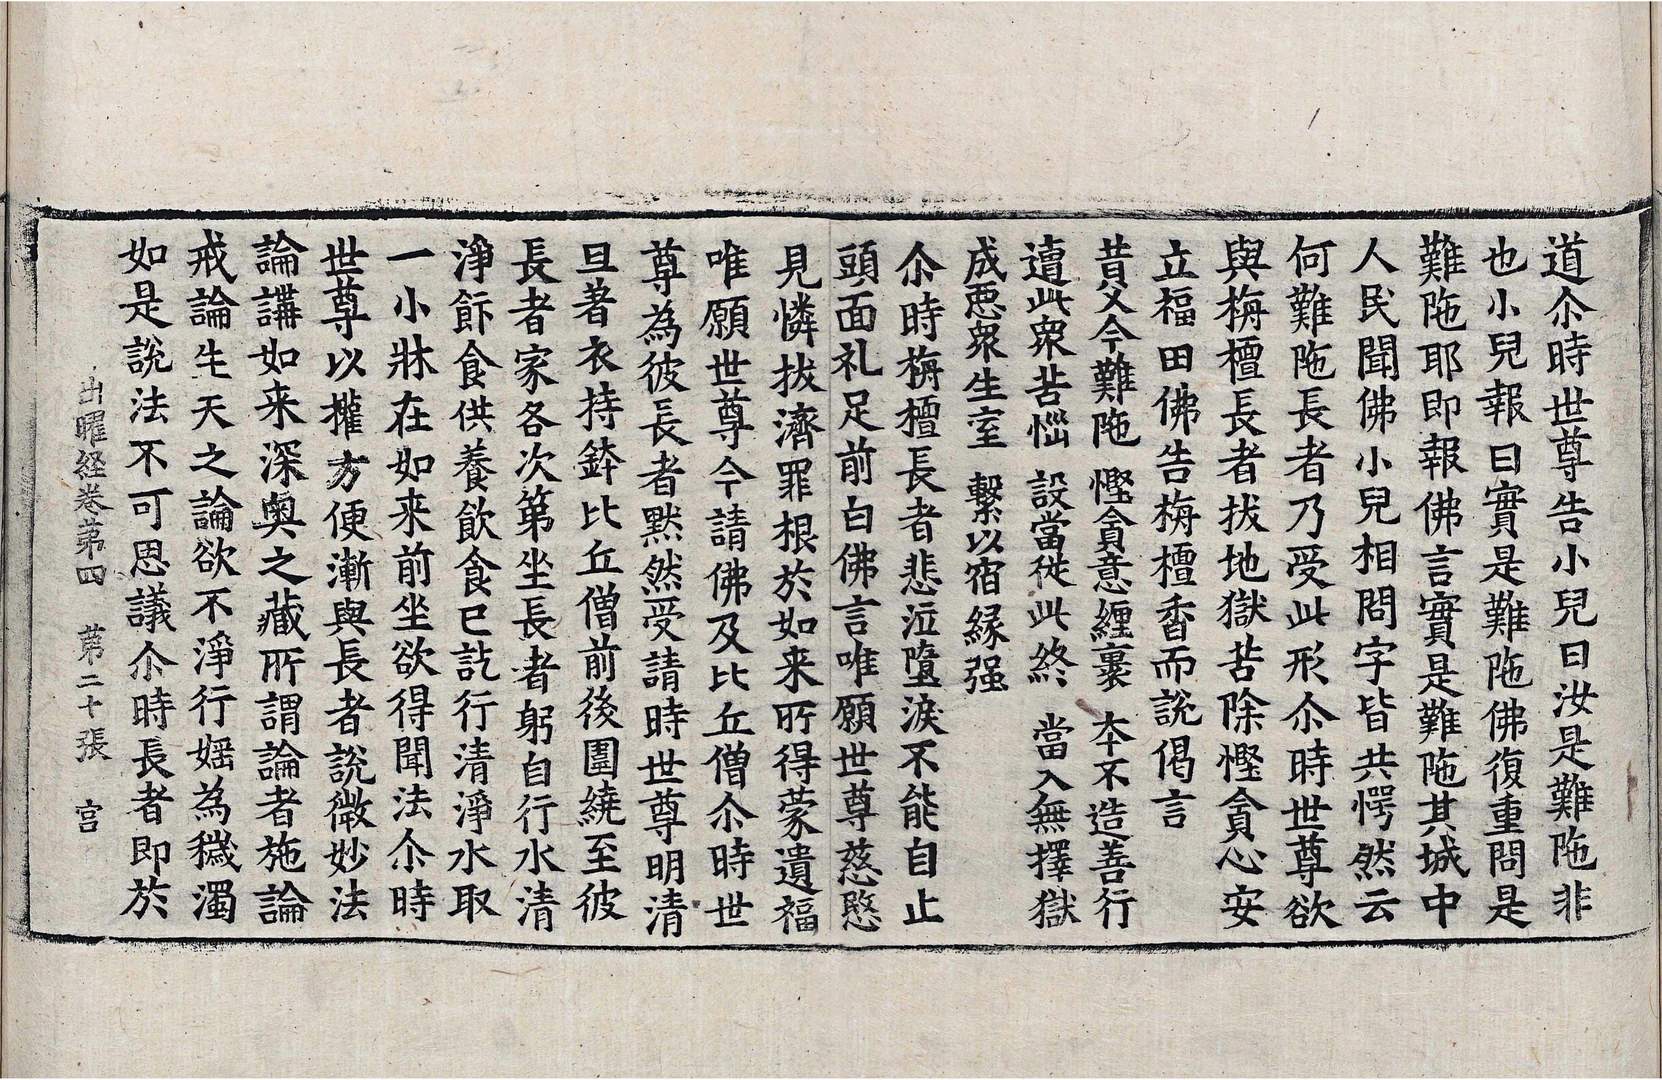 道尒時世尊告小兒曰汝是難陁非
也小兒報曰實是難陁佛復重問是
難陁耶即報佛言實是難陁其城中
人民聞佛小兒相問字皆共愕然云
何難陁長者乃受此形尒時世尊欲
與栴檀長者拔地獄苦除慳貪心安
立福田佛告栴檀香而說偈言
昔父今難陁 慳貪意纏裹 本不造善行
遭此衆苦惱 設當從此終 當入無擇獄
成惡衆生室 繫以宿縁强
尒時栴檀長者悲泣墮淚不能自止
頭面礼足前白佛言唯願世尊慈愍
見憐拔濟罪根於如来所得蒙遺福
唯願世尊今請佛及比丘僧尒時世
尊為彼長者默然受請時世尊明清
旦著衣持鉢比丘僧前後圍繞至彼
長者家各次第坐長者躬自行水清
淨餚食供養飲食已訖行清淨水取
一小牀在如来前坐欲得聞法尒時
世尊以權方便漸與長者說微妙法
論講如来深奥之藏所謂論者施論
戒論生天之論欲不淨行婬為穢濁
如是說法不可思議尒時長者即於
出曜経卷苐四 苐二十張 宫